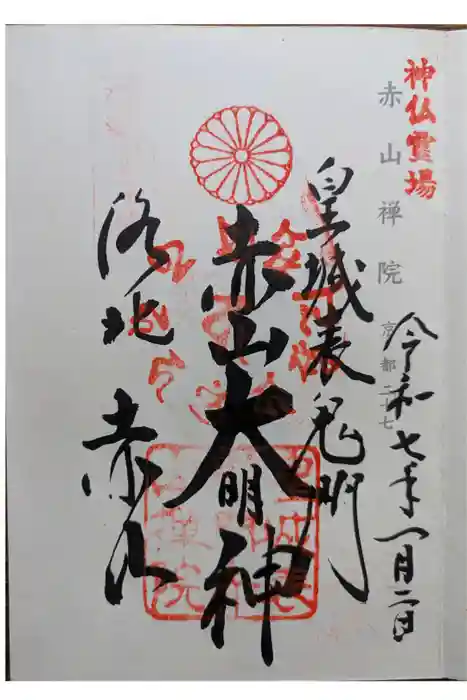 神仏霊場
赤山禅院
京都二十七
令和七年一月二日
皇城表鬼門
赤山大明神
洛北
赤山